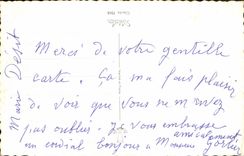 Merci de votre gentille
carte. Ça m'a fait plaisir
de voir que vous ne m'avez
pas oubliée. Je vous embrasse
amicalement
un cordial bonjour à Monsieur